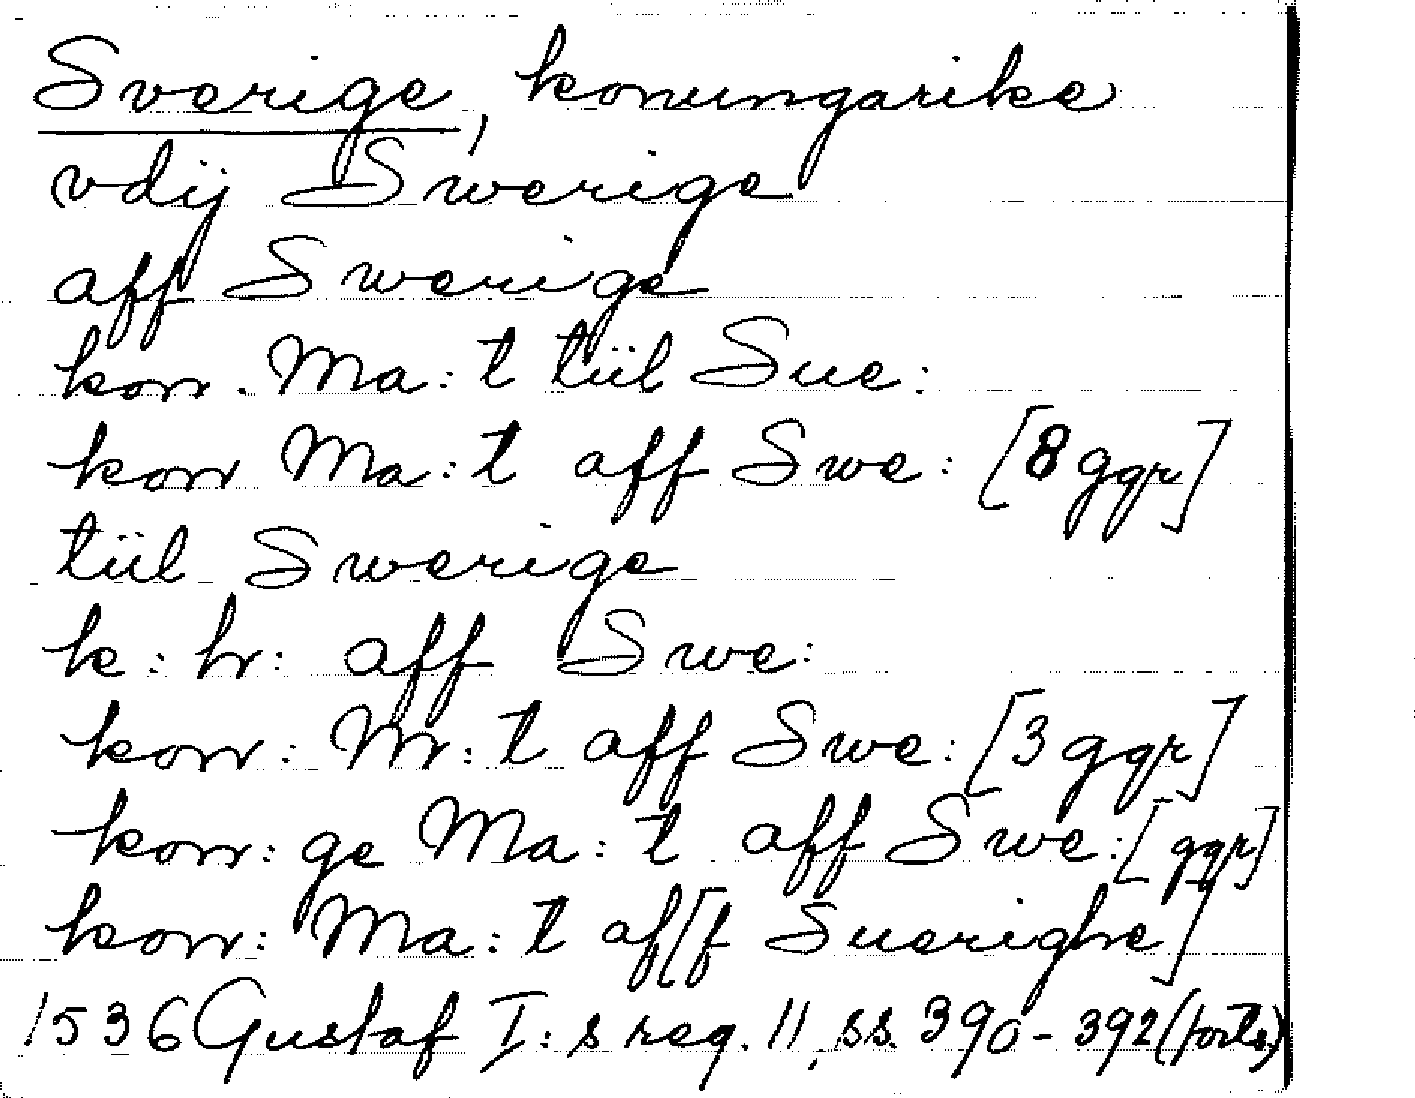 Sverige, konungarike
vdij Swerige
aff Swerige
kon. Ma:t tiil Sue:
kon Ma:t aff Swe: [8 ggr]
tiil Swerige
k: hr: aff Swe:
kon: M:t aff Swe: [3 ggr]
kon: ge Ma:t aff Swe: [ggr]
kon: Ma:t af[f Suerighe]
1536 Gustaf I:s reg. 11, ss. 390-392 (forts)